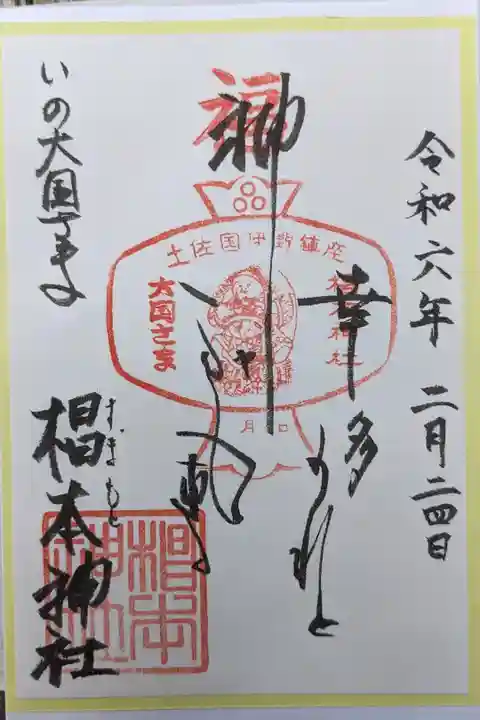 令和六年 二月二四日
幸多かれと
神
福
土佐国伊野鎮座
椙本神社
大国さま
月 日
いの大国さま
すぎもと
椙本神社
椙本
神社